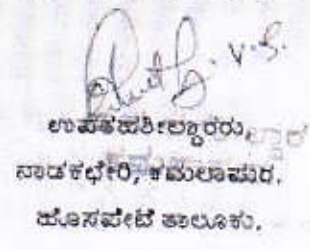 V.S.
ಉಪತಹಶೀಲ್ದಾರರು,
ನಾಡಕಛೇರಿ, ಕಮಲಾಪುರ.
ಹೊಸಪೇಟೆ ತಾಲೂಕು.